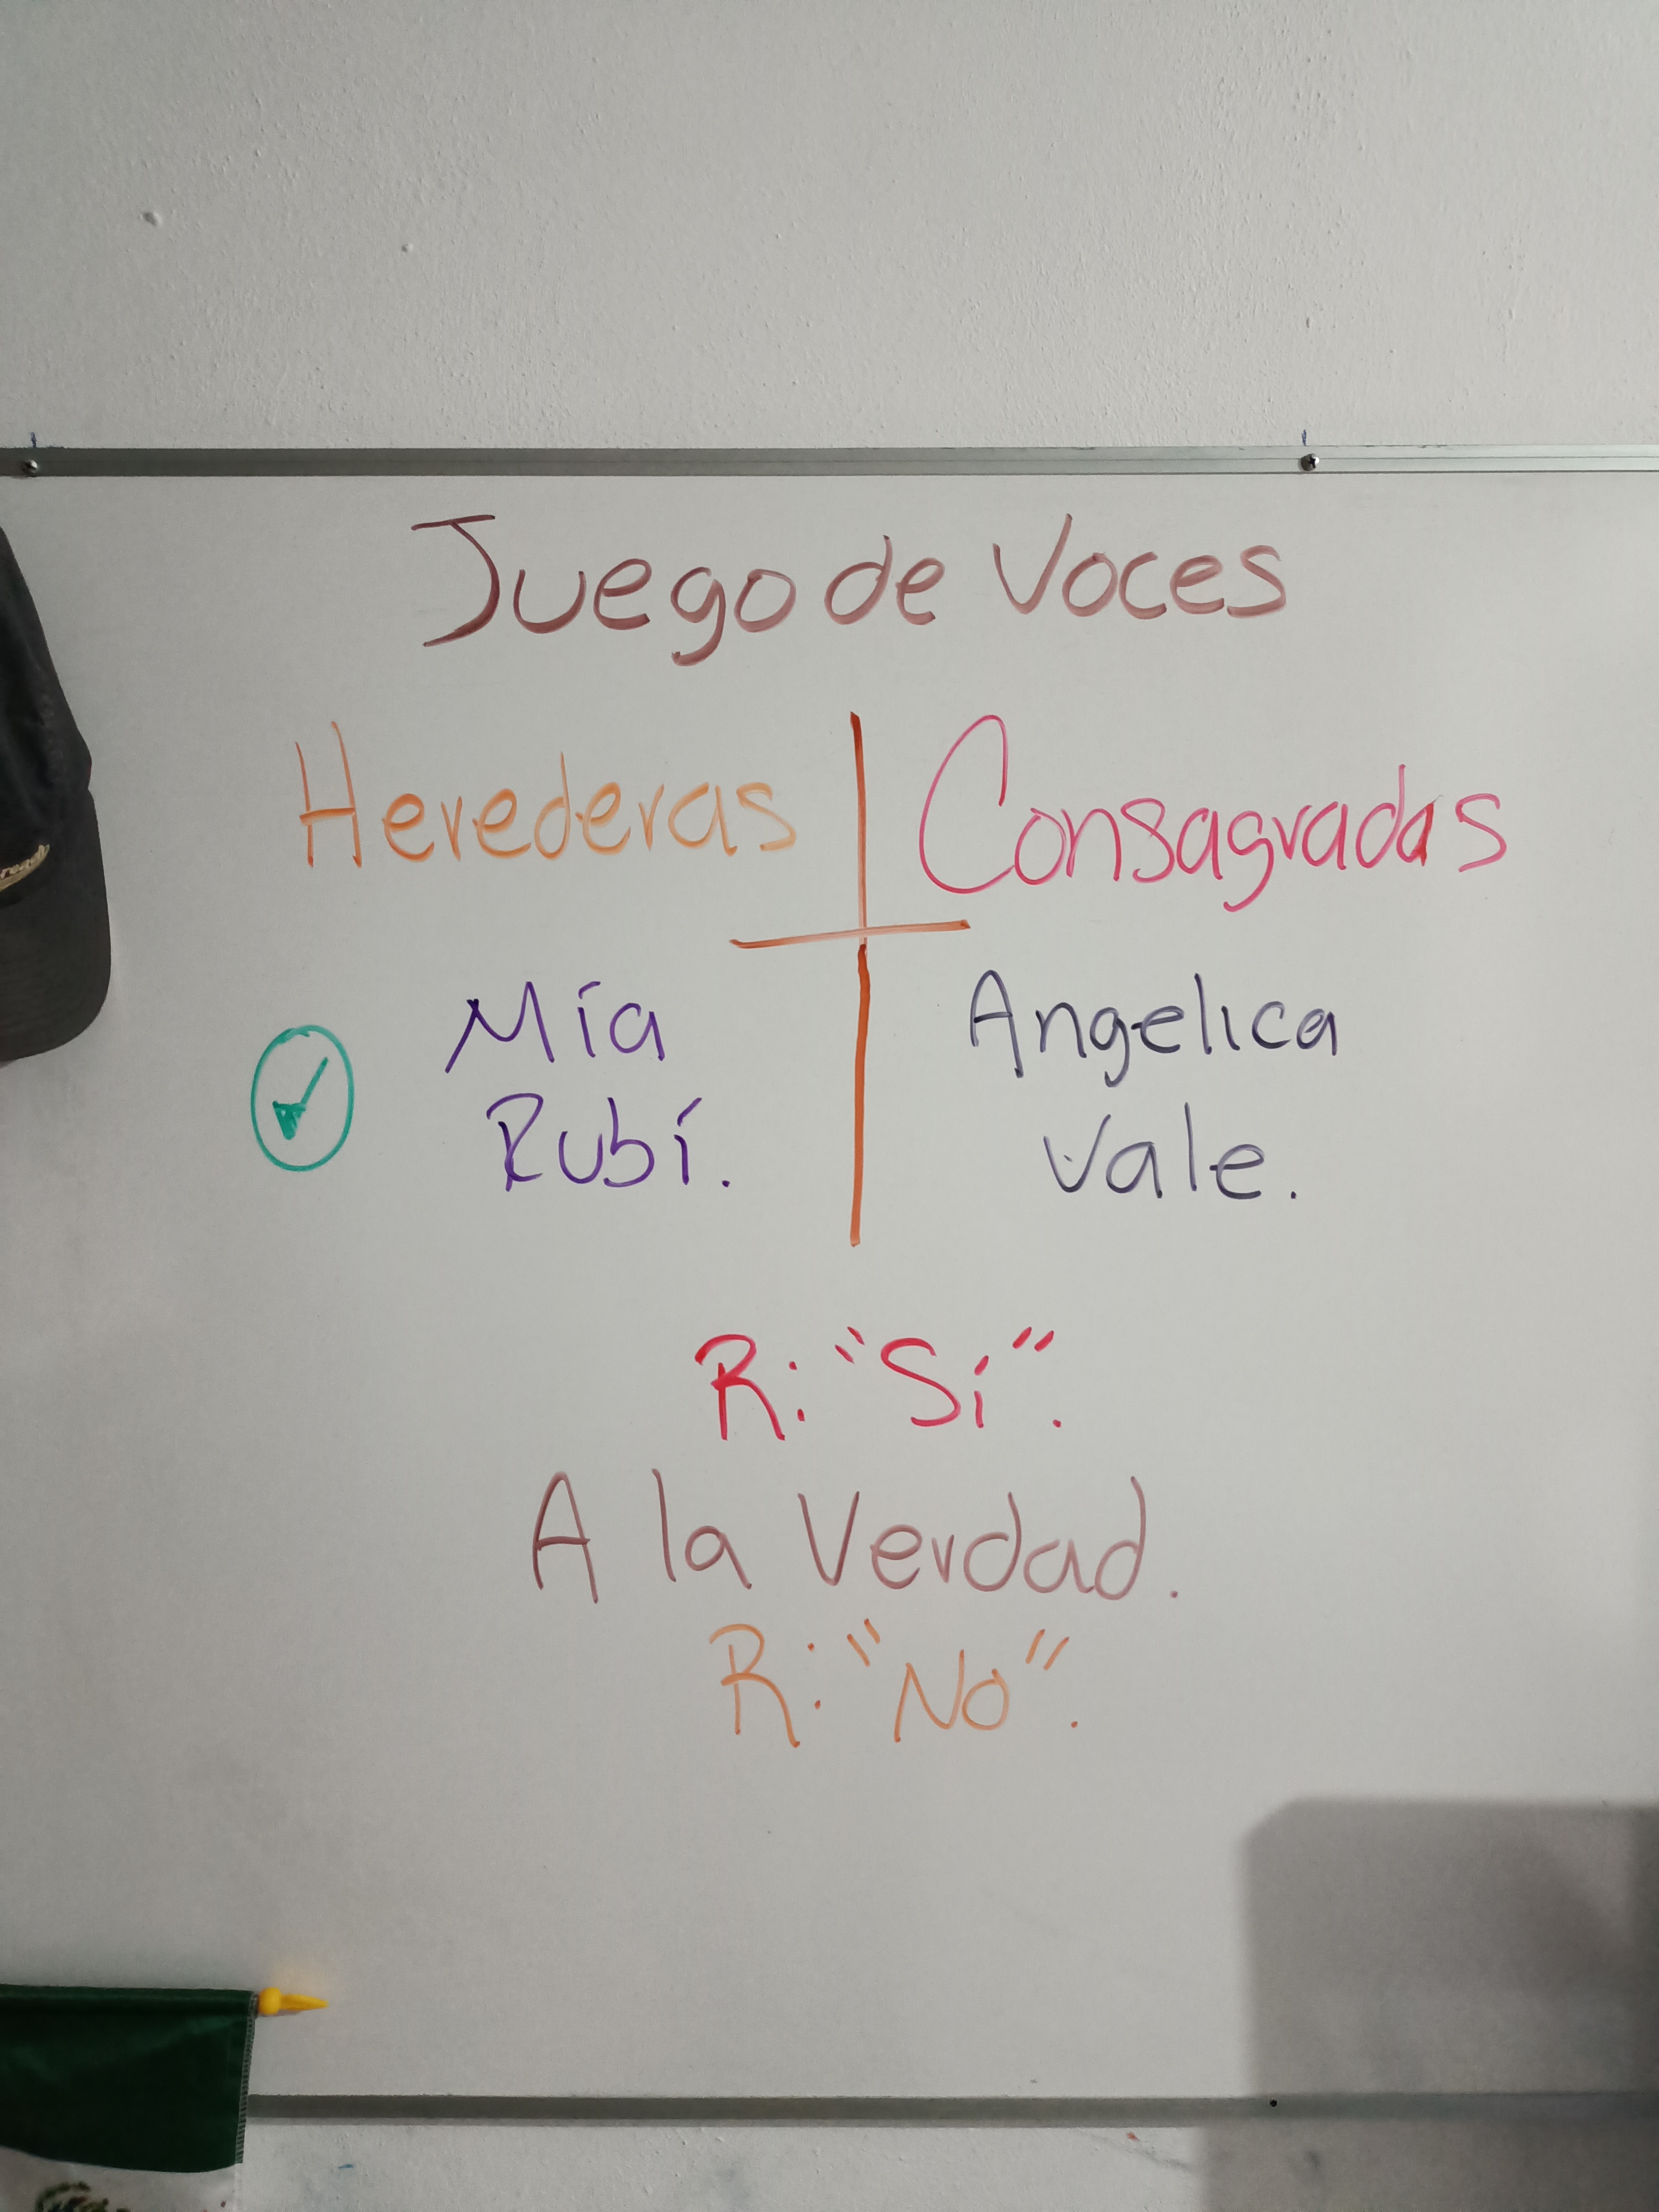 Juego de Voces
Herederas
Consagradas
Mía
Rubí.
Angelica
Vale.
R: "Sí".
A la Verdad.
R: "No".